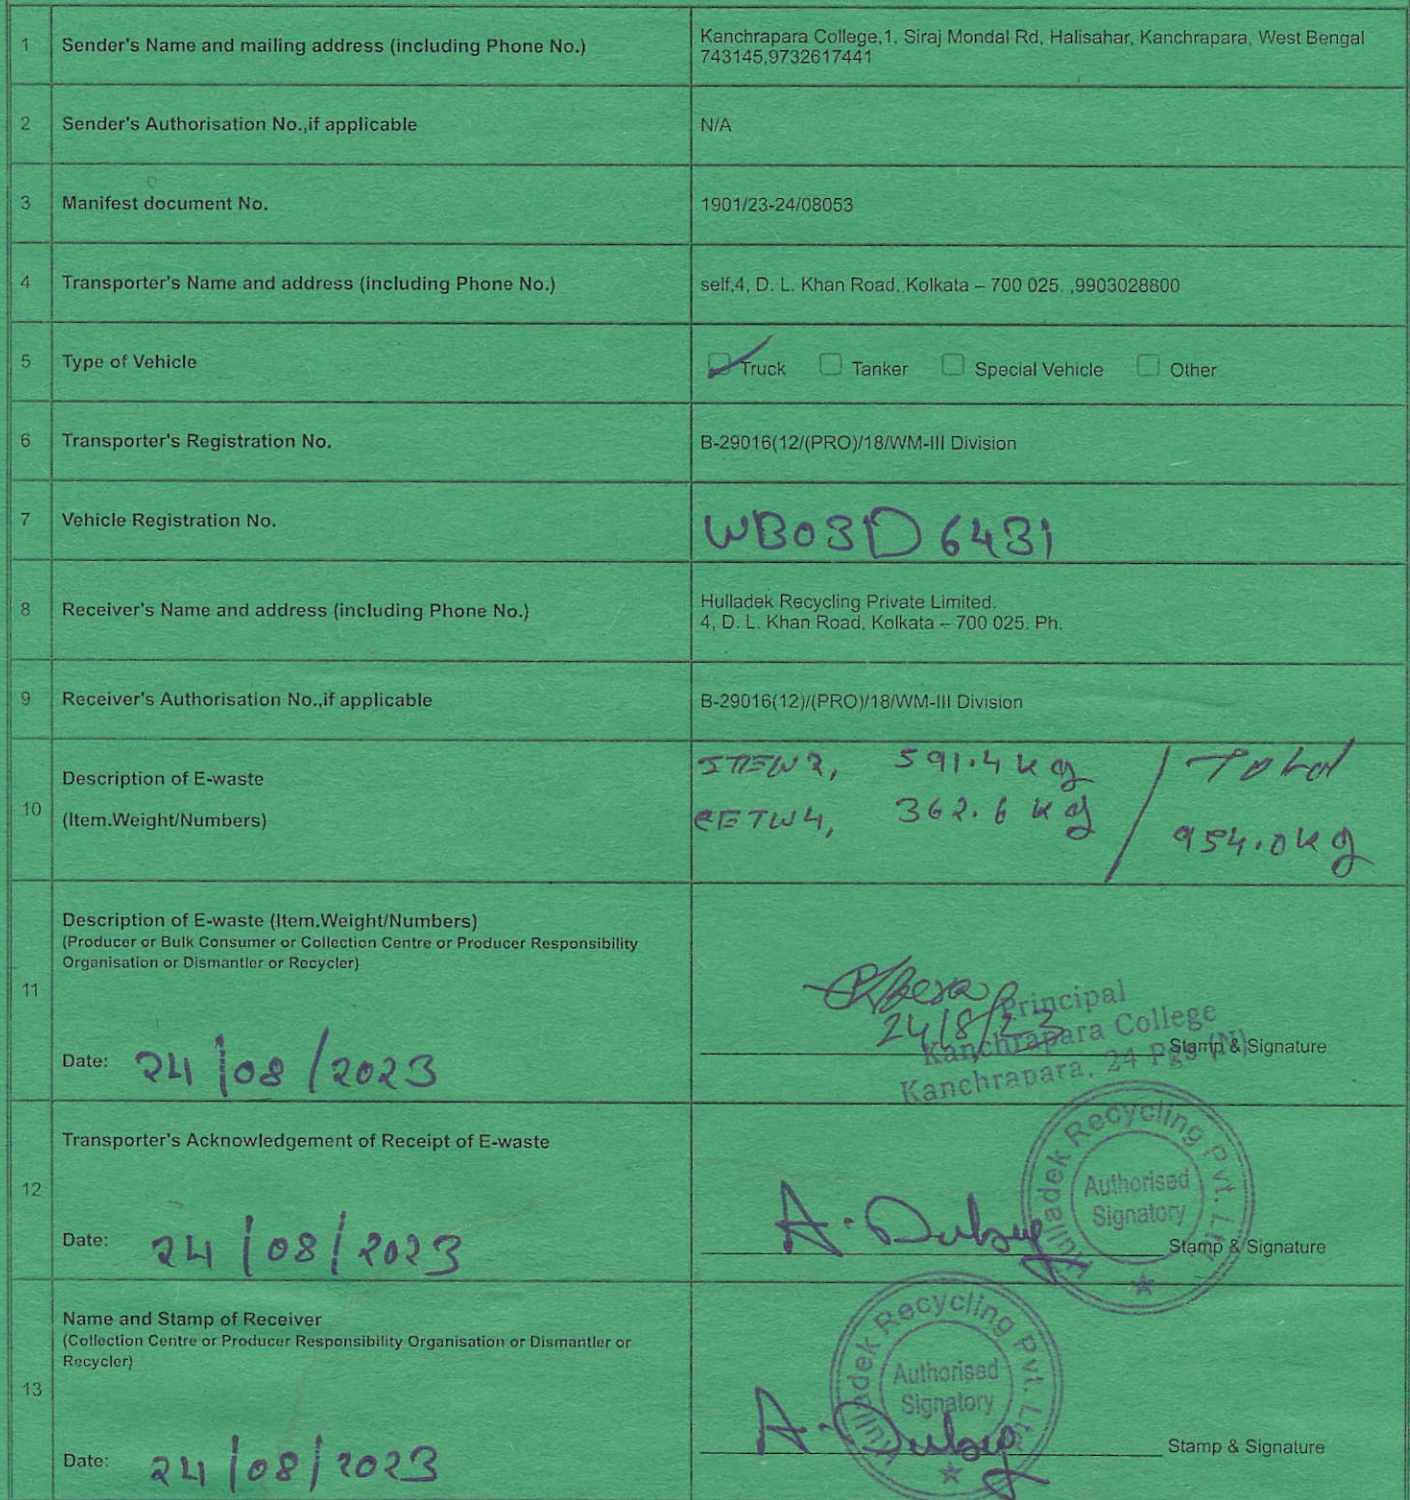 1 Sender's Name and mailing address (including Phone No.) Kanchrapara College,1, Siraj Mondal Rd, Halisahar, Kanchrapara, West Bengal
743145,9732617441
2 Sender's Authorisation No.,if applicable N/A
3 Manifest document No. 1901/23-24/08053
4 Transporter's Name and address (including Phone No.) self,4, D. L. Khan Road, Kolkata – 700 025. ,9903028800
5 Type of Vehicle Truck Tanker Special Vehicle Other
6 Transporter's Registration No. B-29016(12/(PRO)/18/WM-III Division
7 Vehicle Registration No. WB03D 6431
8 Receiver's Name and address (including Phone No.) Hulladek Recycling Private Limited.
4, D. L. Khan Road, Kolkata – 700 025. Ph.
9 Receiver's Authorisation No.,if applicable B-29016(12)/(PRO)/18/WM-III Division
10 Description of E-waste
(Item.Weight/Numbers)
591.4 kg / Total
362.6 kg 954.0kg
11 Description of E-waste (Item.Weight/Numbers)
(Producer or Bulk Consumer or Collection Centre or Producer Responsibility
Organisation or Dismantler or Recycler)
Date: 24/08/2023
24/8/23
Principal
Kanchrapara College
Kanchrapara, 24 Pgs (N)
Stamp & Signature
12 Transporter's Acknowledgement of Receipt of E-waste
Date: 24/08/2023
A. Dubey
Hulladek Recycling Pvt. Ltd.
Authorised
Signatory
Stamp & Signature
13 Name and Stamp of Receiver
(Collection Centre or Producer Responsibility Organisation or Dismantler or
Recycler)
Date: 24/08/2023
A. Dubey
Hulladek Recycling Pvt. Ltd.
Authorised
Signatory
Stamp & Signature